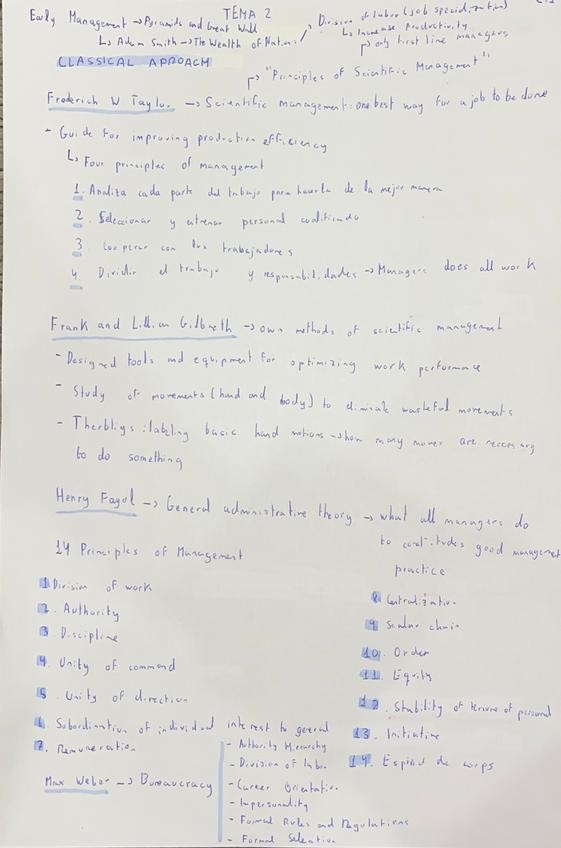 TEMA 2
Early Management → Pyramids and Great Wall
↳ Adam Smith → The Wealth of Nations
Division of labor (job specialization)
↳ Increase Productivity
↳ only first line managers
CLASSICAL APROACH
↳ "Principles of Scientific Management"
Frederich W Taylor → Scientific management: one best way for a job to be done
- Guide for improving production efficiency
↳ Four principles of management
1. Analiza cada parte del trabajo para hacerla de la mejor manera
2. Seleccionar y entrenar personal cualificado
3. Cooperar con los trabajadores
4. Dividir el trabajo y responsabilidades → Managers does all work
Frank and Lillian Gilbreth → own methods of scientific management
- Designed tools and equipment for optimizing work performance
- Study of movements (hand and body) to eliminate wasteful movements
- Therbligs: labeling basic hand motions → how many moves are necessary
to do something
Henry Fayol → General administrative theory → what all managers do
to good management
practice
14 Principles of Management
1. Division of work
2. Authority
3. Discipline
4. Unity of command
5. Unity of direction
6. Subordination of individual interest to general
7. Remuneration
8. Centralization
9. Scalar chain
10. Order
11. Equity
12. Stability of tenure of personal
13. Initiative
14. Espirit de corps
Max Weber → Bureaucracy
- Authority Hierarchy
- Division of labor
- Career Orientation
- Impersonality
- Formal Rules and Regulations
- Formal Selection